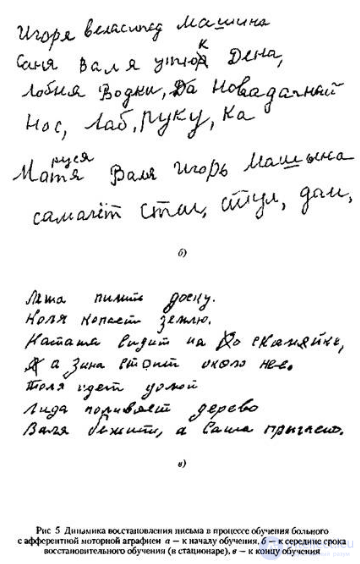 Игоря веласипед Машина
Саня Валя утюк Дена,
Лобня Водки, Да Новадачный
Нос, Лаб, руку, Ка
Маруся
Матя Валя Игорь Машына
самалёт Стал, стул, дом,
б)
Леша пилить доску.
Коля копает землю.
Наташа видит на до скамейке,
а Зина стоит около нее.
Толя идет домой
Лида поливяет дерево
Валя бежит, а Саша прыгает.
в)
Рис 5 Динамика восстановления письма в процессе обучения больного
с афферентной моторной аграфией а – к началу обучения, б – к середине срока
восстановительного обучения (в стационаре), в – к концу обучения